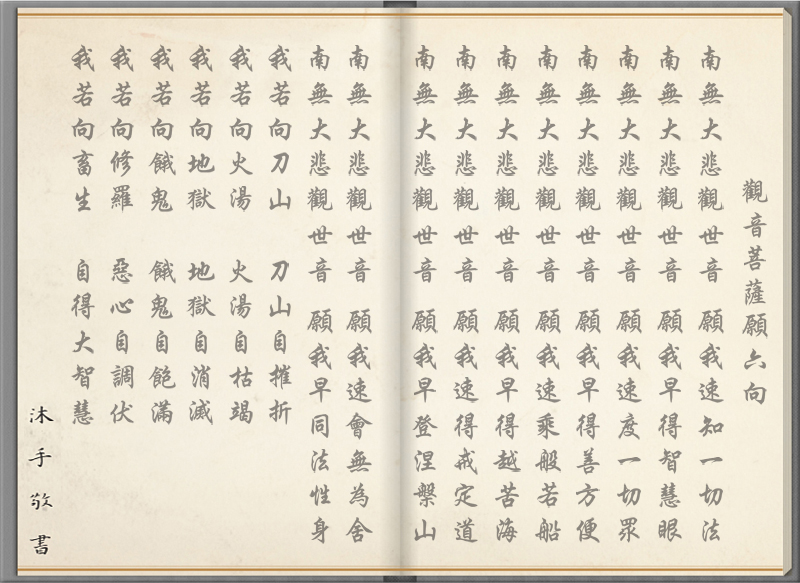 觀音菩薩願六向
南無大悲觀世音 願我速知一切法
南無大悲觀世音 願我早得智慧眼
南無大悲觀世音 願我速度一切眾
南無大悲觀世音 願我早得善方便
南無大悲觀世音 願我速乘般若船
南無大悲觀世音 願我早得越苦海
南無大悲觀世音 願我速得戒定道
南無大悲觀世音 願我早登涅槃山
南無大悲觀世音 願我速會無為舍
南無大悲觀世音 願我早同法性身
我若向刀山 刀山自摧折
我若向火湯 火湯自枯竭
我若向地獄 地獄自消滅
我若向餓鬼 餓鬼自飽滿
我若向修羅 惡心自調伏
我若向畜生 自得大智慧
沐手敬書